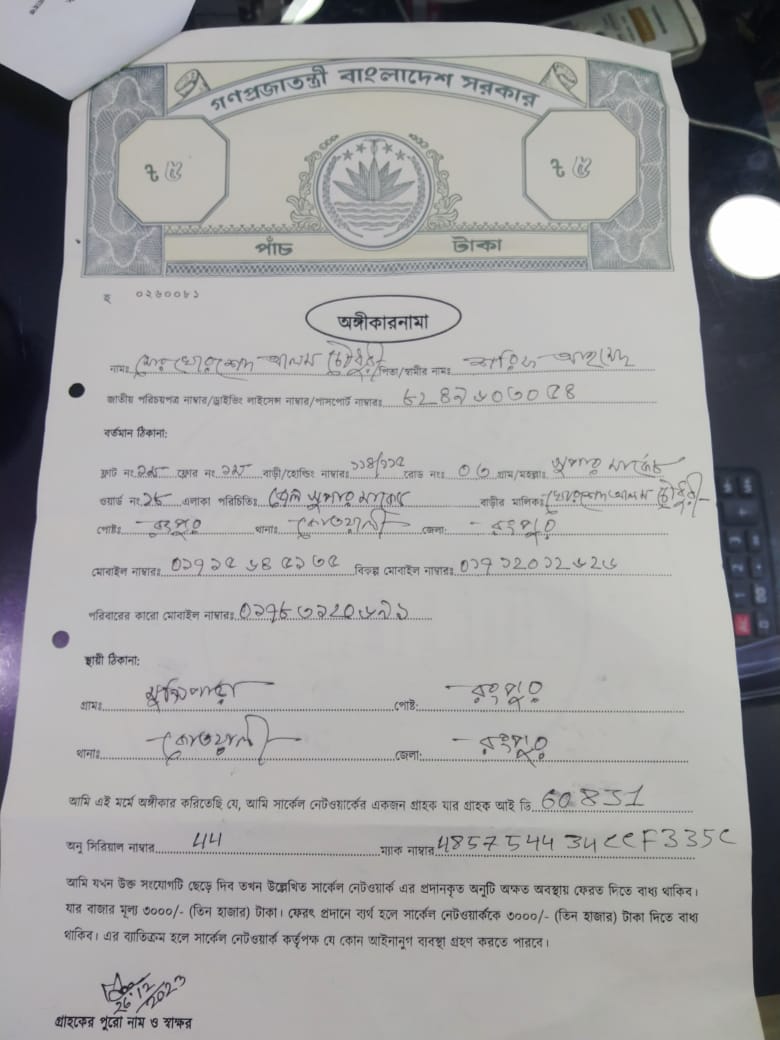 গণপ্রজাতন্ত্রী বাংলাদেশ সরকার
৳ ৫ ৳ ৫
পাঁচ টাকা
হ ০২৬০০৮১
অঙ্গীকারনামা
নামঃ মোঃ খোরশেদ আলম চৌধুরী পিতা/স্বামীর নামঃ
জাতীয় পরিচয়পত্র নাম্বার/ড্রাইভিং লাইসেন্স নাম্বার/পাসপোর্ট নাম্বারঃ
বর্তমান ঠিকানা:
ফ্লাট নং ফ্লোর নং বাড়ী/হোল্ডিং নাম্বারঃ ১১৪/১১৫ রোড নংঃ ০৩ গ্রাম/মহল্লাঃ সুপার মার্কেট
ওয়ার্ড নং এলাকা পরিচিতিঃ সুপার মার্কেট বাড়ীর মালিকঃ খোরশেদ আলম চৌধুরী
পোষ্টঃ রংপুর থানাঃ কোতয়ালী জেলা: রংপুর
মোবাইল নাম্বারঃ বিকল্প মোবাইল নাম্বারঃ
পরিবারের কারো মোবাইল নাম্বারঃ
স্থায়ী ঠিকানা:
গ্রামঃ মুন্সিপাড়া পোষ্ট: রংপুর
থানাঃ কোতয়ালী জেলা: রংপুর
আমি এই মর্মে অঙ্গীকার করিতেছি যে, আমি সার্কেল নেটওয়ার্কের একজন গ্রাহক যার গ্রাহক আই ডি 60831
অনু সিরিয়াল নাম্বার 44 ম্যাক নাম্বার 4857544434CCF335C
আমি যখন উক্ত সংযোগটি ছেড়ে দিব তখন উল্লেখিত সার্কেল নেটওয়ার্ক এর প্রদানকৃত অনুটি অক্ষত অবস্থায় ফেরত দিতে বাধ্য থাকিব।
যার বাজার মূল্য ৩০০০/- (তিন হাজার) টাকা। ফেরৎ প্রদানে ব্যর্থ হলে সার্কেল নেটওয়ার্ককে ৩০০০/- (তিন হাজার) টাকা দিতে বাধ্য
থাকিব। এর ব্যতিক্রম হলে সার্কেল নেটওয়ার্ক কর্তৃপক্ষ যে কোন আইনানুগ ব্যবস্থা গ্রহণ করতে পারবে।
26.12
2023
গ্রাহকের পুরো নাম ও স্বাক্ষর